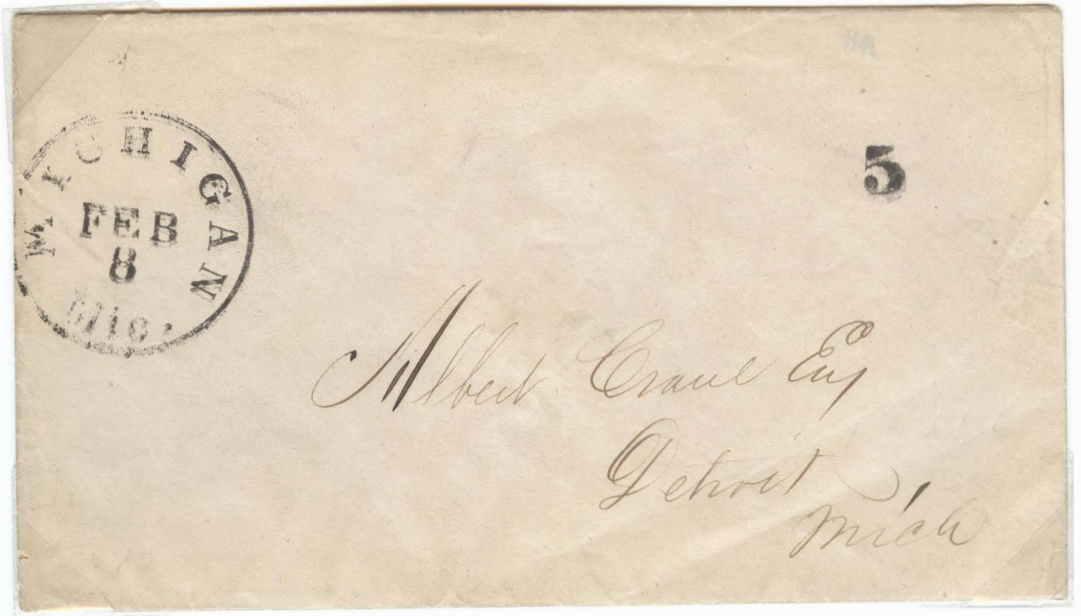 MICHIGAN
FEB
8
Mic.
5
Albert Crane Esq
Detroit
Mich